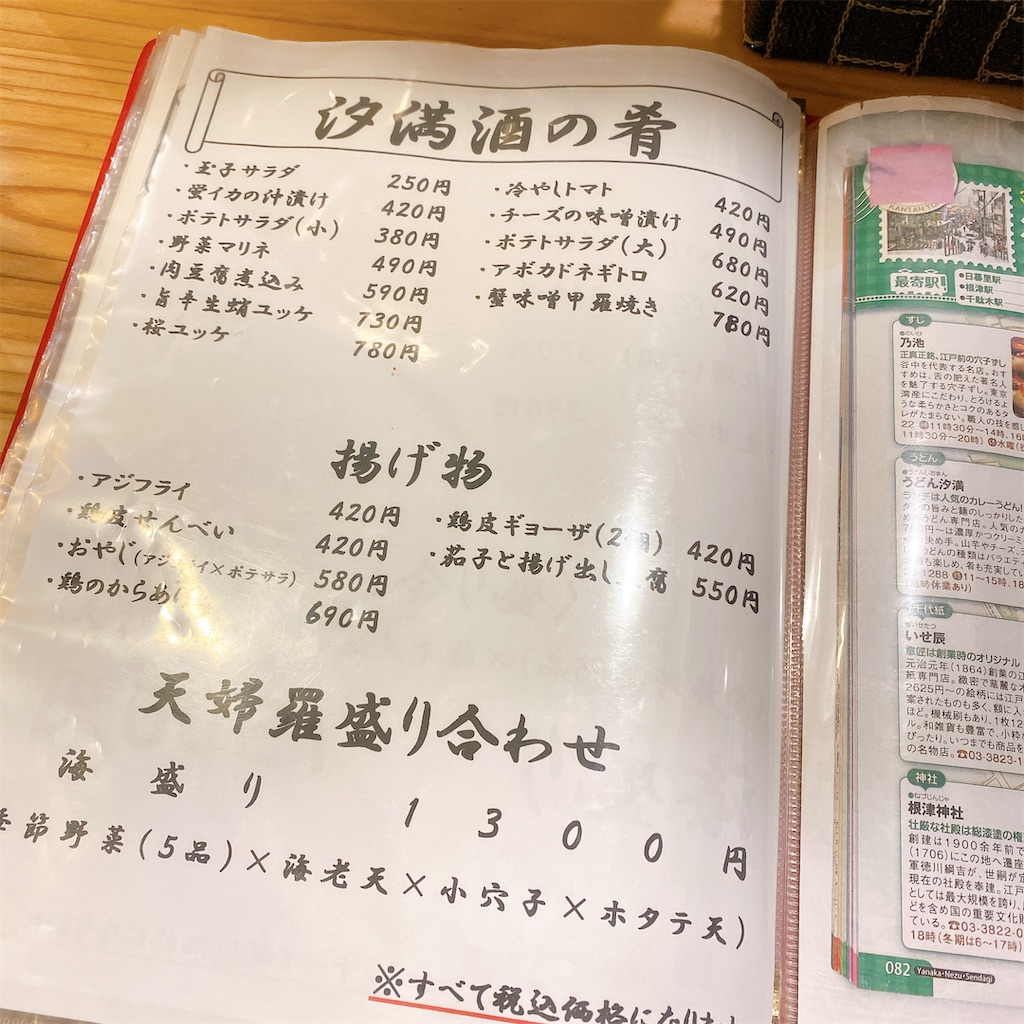 汐満酒の肴
・玉子サラダ 250円
・蛍イカの沖漬け 420円
・ポテトサラダ(小) 380円
・野菜マリネ 490円
・肉豆腐煮込み 590円
・旨辛生蛸ユッケ 730円
・桜ユッケ 780円
・冷やしトマト 420円
・チーズの味噌漬け 490円
・ポテトサラダ(大) 680円
・アボカドネギトロ 620円
・蟹味噌甲羅焼き 780円
揚げ物
・アジフライ 420円
・鶏皮せんべい 420円
・おやじ(アジフライ×ポテサラ) 580円
・鶏のからあげ 690円
・鶏皮ギョーザ(2個) 420円
・茄子と揚げ出し豆腐 550円
天婦羅盛り合わせ
海盛り 1300円
季節野菜(5品)×海老天×小穴子×ホタテ天)
※すべて税込価格になります
最寄駅
●日暮里駅
●根津駅
●千駄木駅
すし
●のいけ
乃池
正真正銘、江戸前の穴子ずし
谷中を代表する名店。おす
すめは、舌の肥えた著名人
を魅了する穴子ずし。東京
湾産にこだわり、とろけるよ
うな柔らかさとコクのあるタ
レがたまらない。職人の技を感じ
22 11時30分〜14時、16時
11時30分〜20時) 水曜(祝
うどん
●うどんしおまん
うどん汐満
ランチは人気のカレーうどん!
め うどん専門店。人気のカ
円〜は濃厚かつクリーミ
決め手。山芋やチーズ、
うどんの種類はバラエティ
も楽しめ、肴も充実してい
1288 11〜15時、18
臨時休業あり)
千代紙
●いせたつ
いせ辰
意匠は創業時のオリジナル
元治元年(1864)創業の江
紙専門店。緻密で華麗な木
2625円〜の絵柄には江戸
案されたものも多く、額に入
ほど。機械刷もあり、1枚12
ル。和雑貨も豊富で、小粋な
ぴったり。いつまでも商品を
の名物店。☎03-3823-1
神社
●ねづじんじゃ
根津神社
壮厳な社殿は総漆塗の権
創建は1900余年前で
(1706)にこの地へ遷座
軍徳川綱吉が、世嗣が定
現在の社殿を奉建。江戸
としては最大規模を誇り、
どを含め国の重要文化財
ている。☎03-3822-0
18時(冬期は6〜17時)
082 Yanaka・Nezu・Sendagi